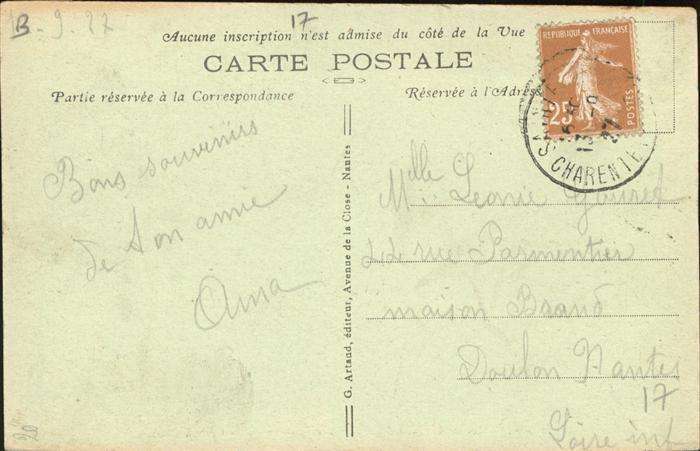 B - 9. 27
17
Aucune inscription n'est admise du côté de la Vue
CARTE POSTALE
Partie réservée à la Correspondance
Réservée à l'Adresse
RÉPUBLIQUE FRANÇAISE
25
POSTES
CHARENTE
Bons souvenirs
de ton amie
G. Artaud, éditeur, Avenue de la Close - Nantes
Mlle Leonie
rue Parmentier
maison Brand
Doulon Nantes
17
Loire inf
20